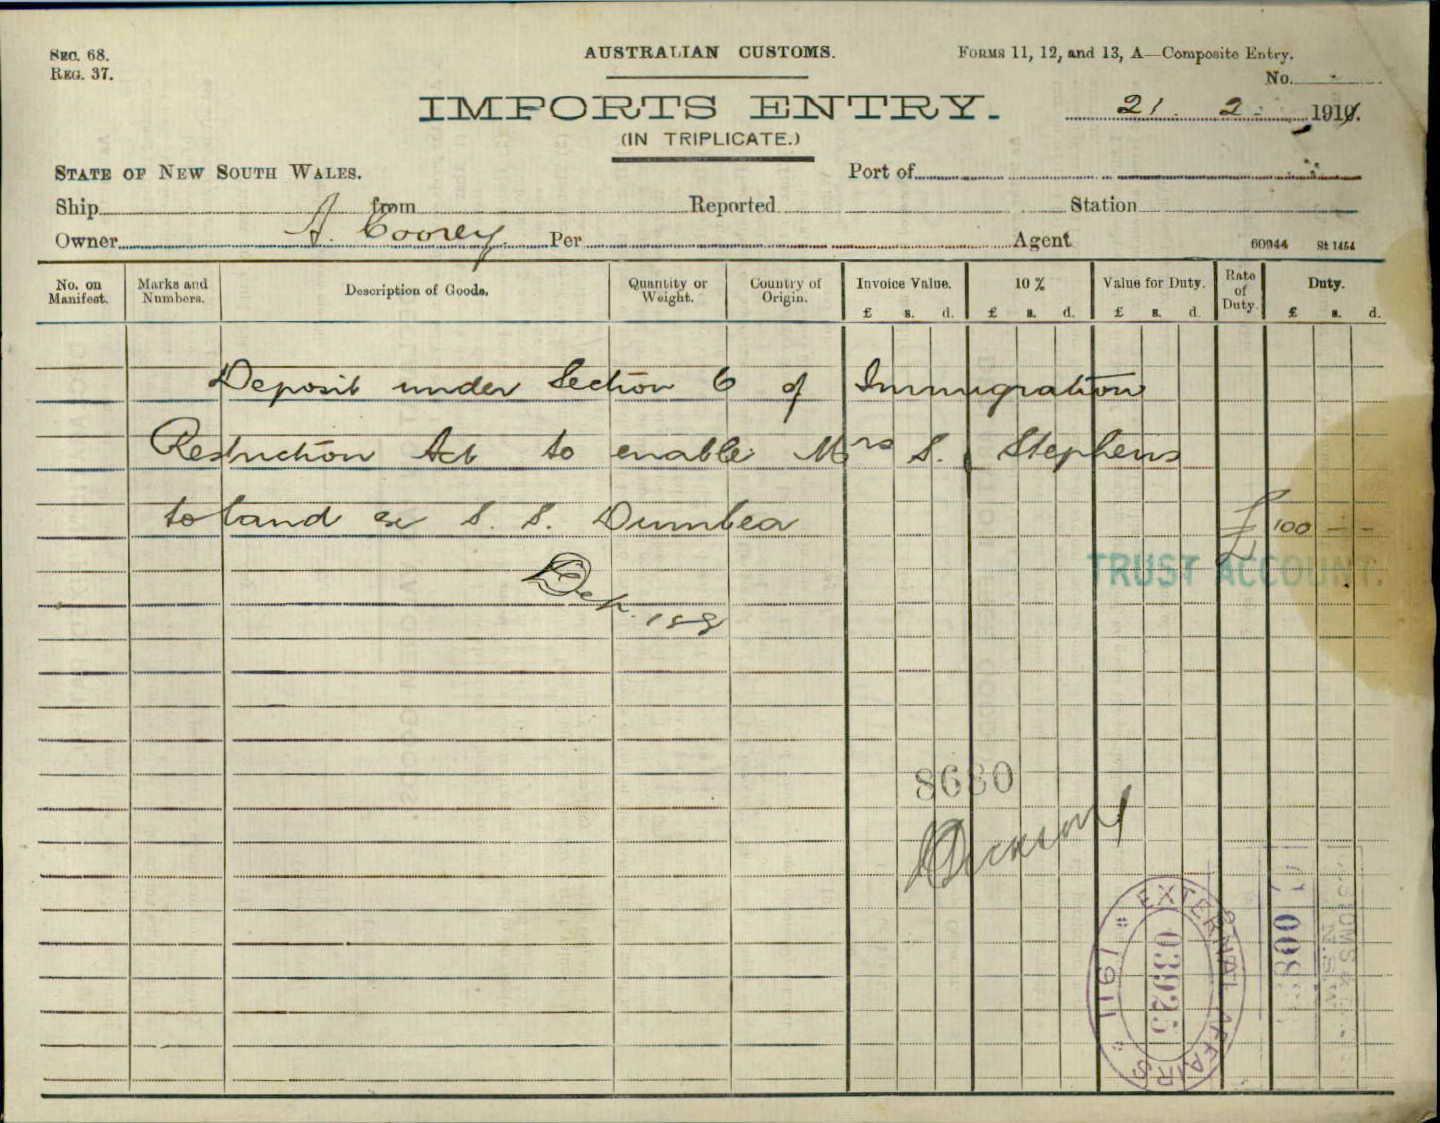 SEC. 68.
REG. 37.
AUSTRALIAN CUSTOMS.
FORMS 11, 12, and 13, A—Composite Entry.
No.
IMPORTS ENTRY.
21. 2. 191
(IN TRIPLICATE.)
STATE OF NEW SOUTH WALES.
Port of
Ship from Reported Station
Owner A. Coorey Per Agent 60944 St 1454
No. on Manifest.
Marks and Numbers.
Description of Goods.
Quantity or Weight.
Country of Origin.
Invoice Value.
10 %
Value for Duty.
Rate of Duty.
Duty.
£ s. d. £ s. d. £ s. d. £ s. d.
Deposit under Section 6 of Immigration
Restriction Act to enable Mrs S. Stephens
to land ex S. S. Dumbea £ 100 - -
TRUST ACCOUNT.
Dep. 188
8680
Dickson
EXTERNAL AFFAIRS
1911